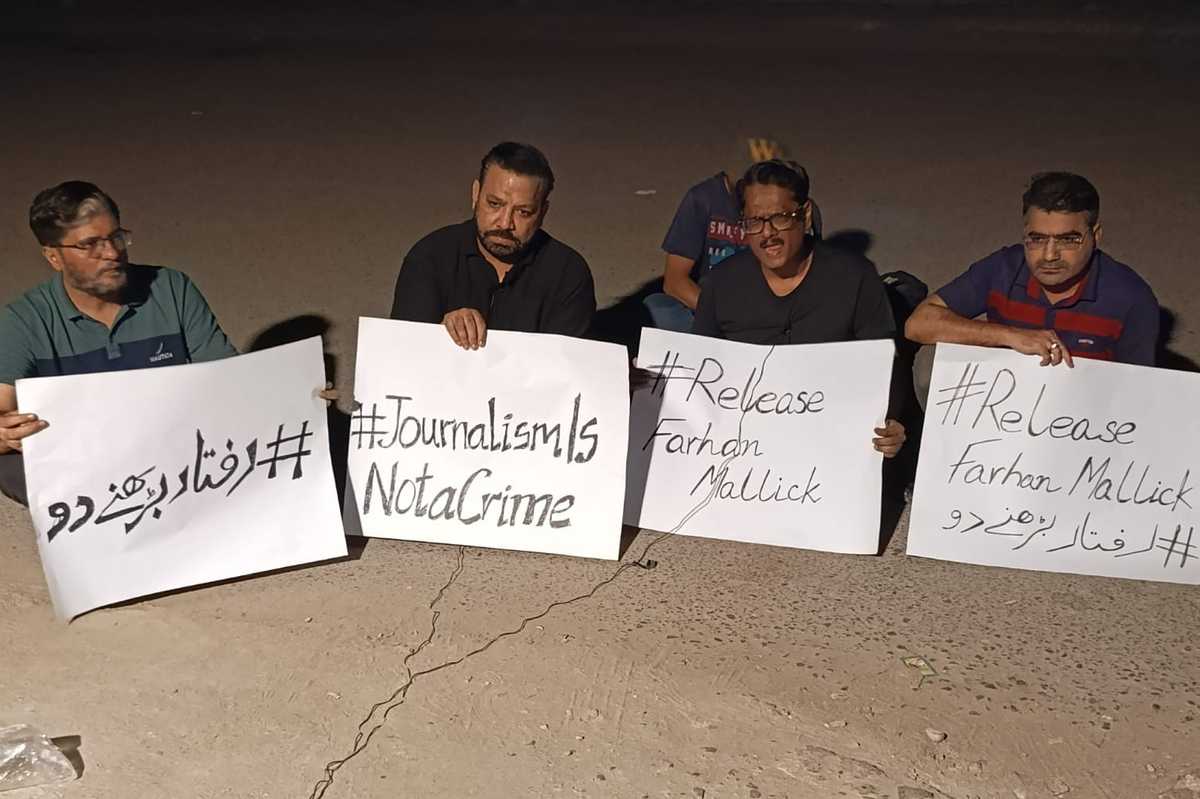 #رفتار بڑھنے دو
#JournalismIs
NotaCrime
#Release
Farhan
Mallick
#Release
Farhan Mallick
#رفتار بڑھنے دو
NAUTICA